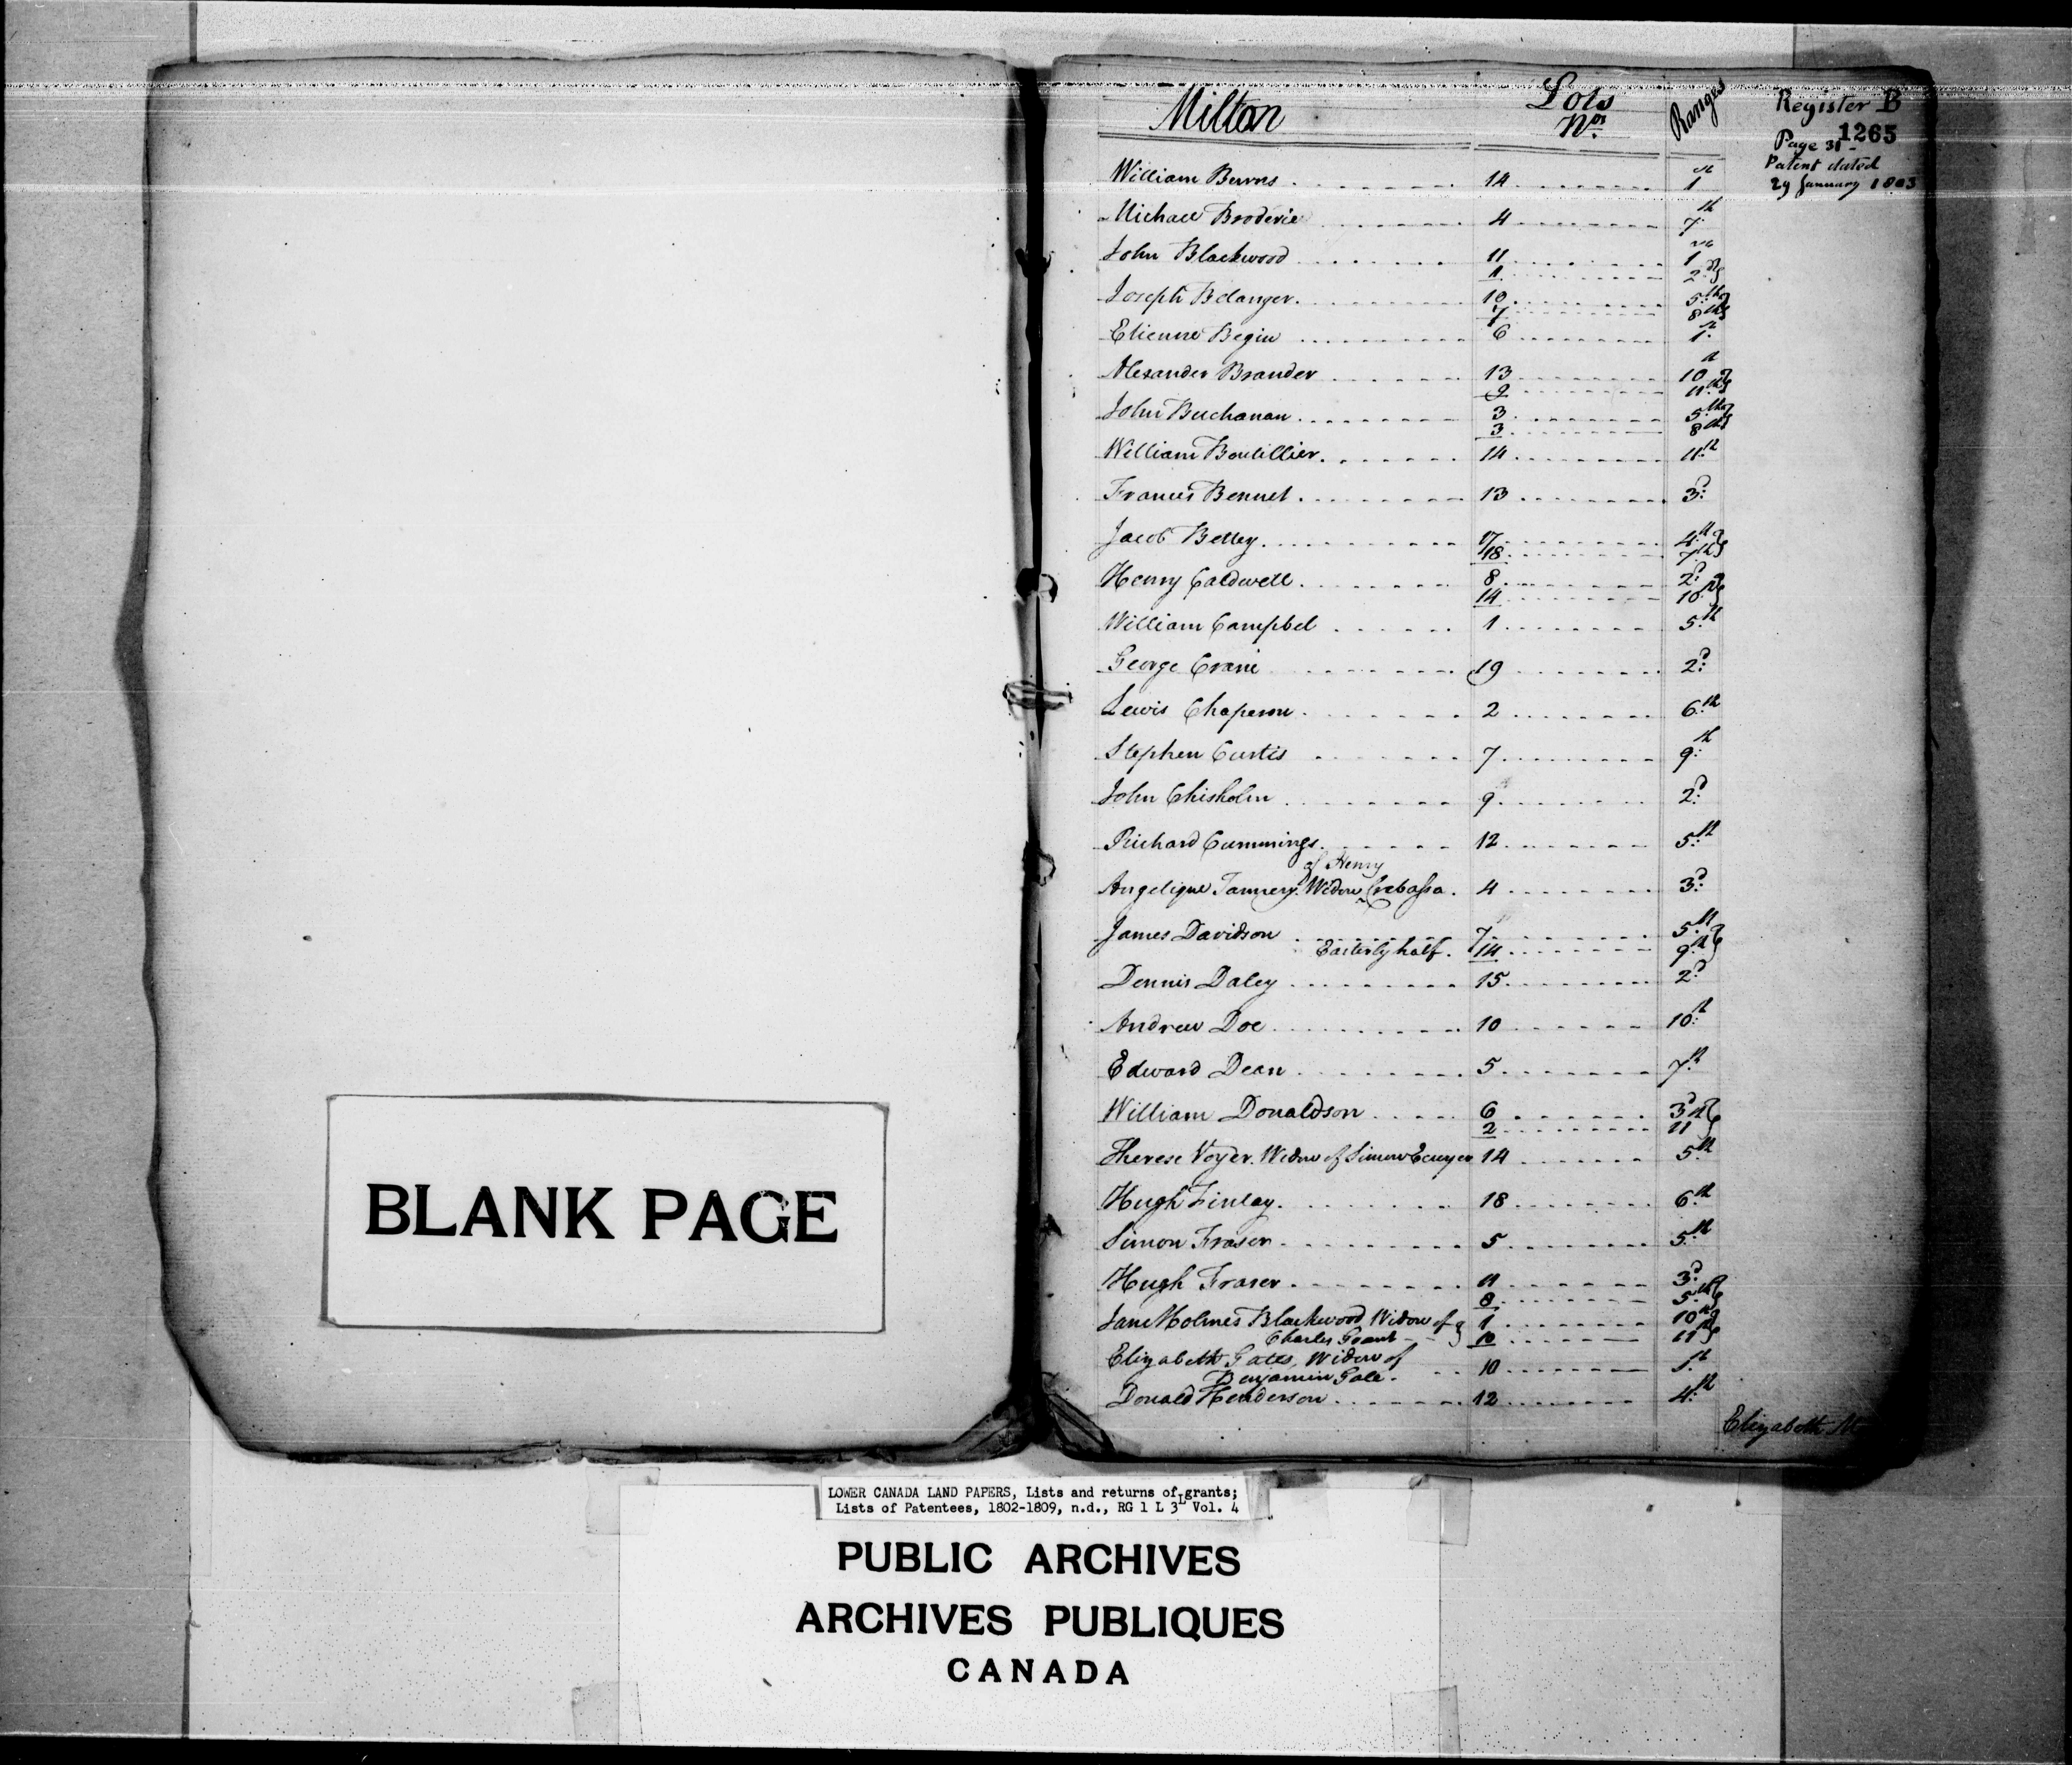 BLANK PAGE
Milton Lots Nos. Ranges
Register B
1265
Page 31
Patent dated
29 January 1803
William Burns 14 1st
Michael Broderie 4 7th
John Blackwood 11 1st
1 2d
Joseph Belanger 10 5th
7 8th
Etienne Begin 6 1st
Alexander Brander 13 10th
9 11th
John Buchanan 3 5th
3 8th
William Boutillier 14 11th
Francis Bennet 13 3d
Jacob Bettey 17 4th
18 7th
Henry Caldwell 8 2d
14 10th
William Campbel 1 5th
George Crane 19 2d
Lewis Chaperon 2 6th
Stephen Curtis 7 9th
John Chisholm 9 2d
Richard Cummings 12 5th
of Henry
Angelique Tannery Widow Crebassa 4 3d
James Davidson 7 5th
Easterly half 14 9th
Dennis Daley 15 2d
Andrew Doe 10 10th
Edward Dean 5 7th
William Donaldson 6 3d
2 11th
Therese Voyer Widow of Simon Ecuyer 14 5th
Hugh Finlay 18 6th
Simon Fraser 5 5th
Hugh Fraser 11 3d
8 5th
Jane Holmes Blackwood Widow of 1 10th
Charles Grant 10 11th
Elizabeth Gates, Widow of
Benjamin Gale 10 1st
Donald Henderson 12 4th
Elizabeth
LOWER CANADA LAND PAPERS, Lists and returns of grants;
Lists of Patentees, 1802-1809, n.d., RG 1 L 3L Vol. 4
PUBLIC ARCHIVES
ARCHIVES PUBLIQUES
CANADA